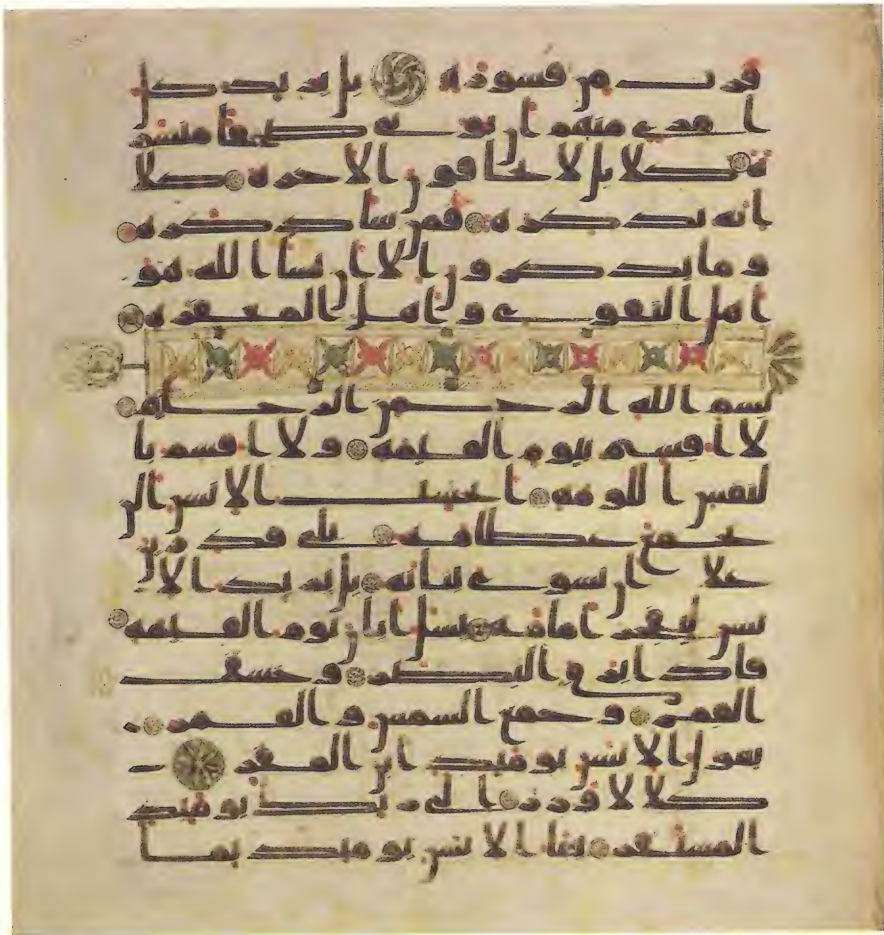 فرت من قسورة بل يريد كل
امرى منهم ان يوتى صحفا منشر
ة كلا بل لا يخافون الاخرة كلا
انه تذكرة فمن شا ذكره
وما يذكرون الا ان يشا الله هو
اهل التقوى واهل المغفرة
بسم الله الرحمن الرحيم
لا اقسم بيوم القيمة ولا اقسم با
لنفس اللومة ايحسب الانسن الن
نجمع عظامه بلى قدرين
على ان نسوى بنانه بل يريد الا
نسن ليفجر امامه يسل ايان يوم القيمة
فاذا برق البصر وخسف
القمر وجمع الشمس والقمر
يقول الانسن يومئذ اين المفر
كلا لا وزر الى ربك يومئذ
المستقر ينبا الانسن يومئذ بما